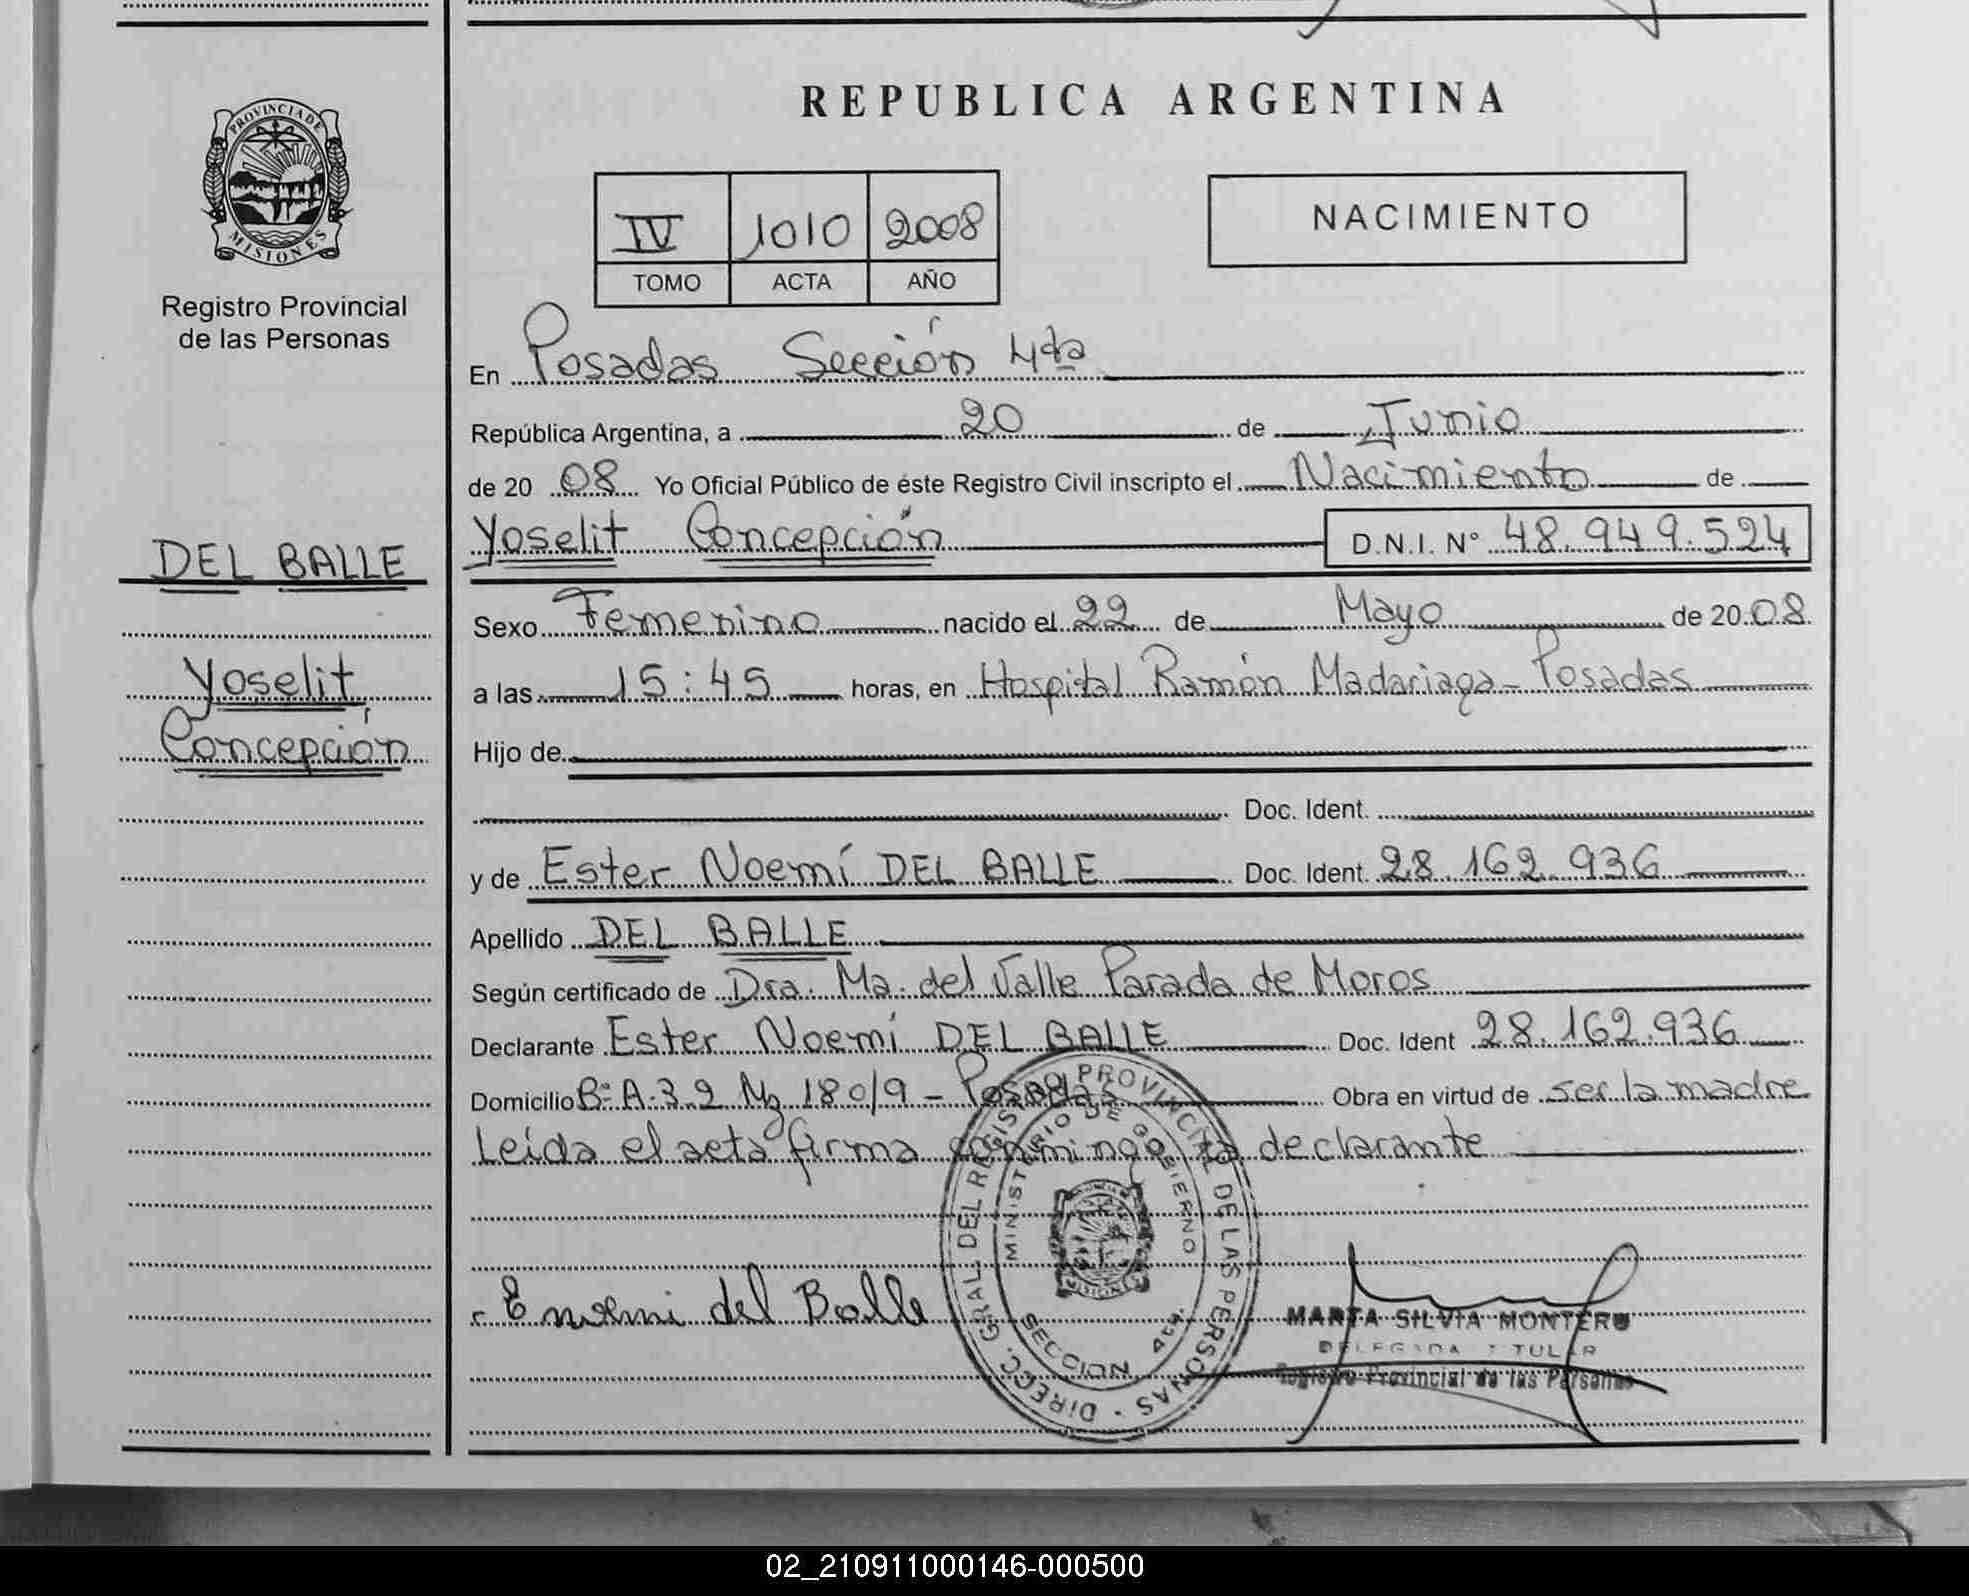 PROVINCIA DE
MISIONES
Registro Provincial
de las Personas
DEL BALLE
Yoselit
Concepción
REPUBLICA ARGENTINA
IV 1010 2008
TOMO ACTA AÑO
NACIMIENTO
En Posadas Sección 4ta
República Argentina, a 20 de Junio
de 20 08 Yo Oficial Público de éste Registro Civil inscripto el Nacimiento de
Yoselit Concepción D.N.I. N° 48.949.524
Sexo Femenino nacido el 22 de Mayo de 20 08
a las 15:45 horas, en Hospital Ramón Madariaga - Posadas
Hijo de
Doc. Ident.
y de Ester Noemí DEL BALLE Doc. Ident. 28.162.936
Apellido DEL BALLE
Según certificado de Dra. Ma. del Valle Parada de Moros
Declarante Ester Noemí DEL BALLE Doc. Ident 28.162.936
Domicilio B° A-3-2 Mz 180/9 - Posadas Obra en virtud de ser la madre
Leida el acta firma conmigo la declarante
DIRECC. GRAL. DEL REGISTRO PROVINCIAL DE LAS PERSONAS
MINISTERIO DE GOBIERNO
SECCION 4ta.
E noemi del Balle
MARTA SILVIA MONTERO
DELEGADA TITULAR
Registro Provincial de las Personas
02_210911000146-000500